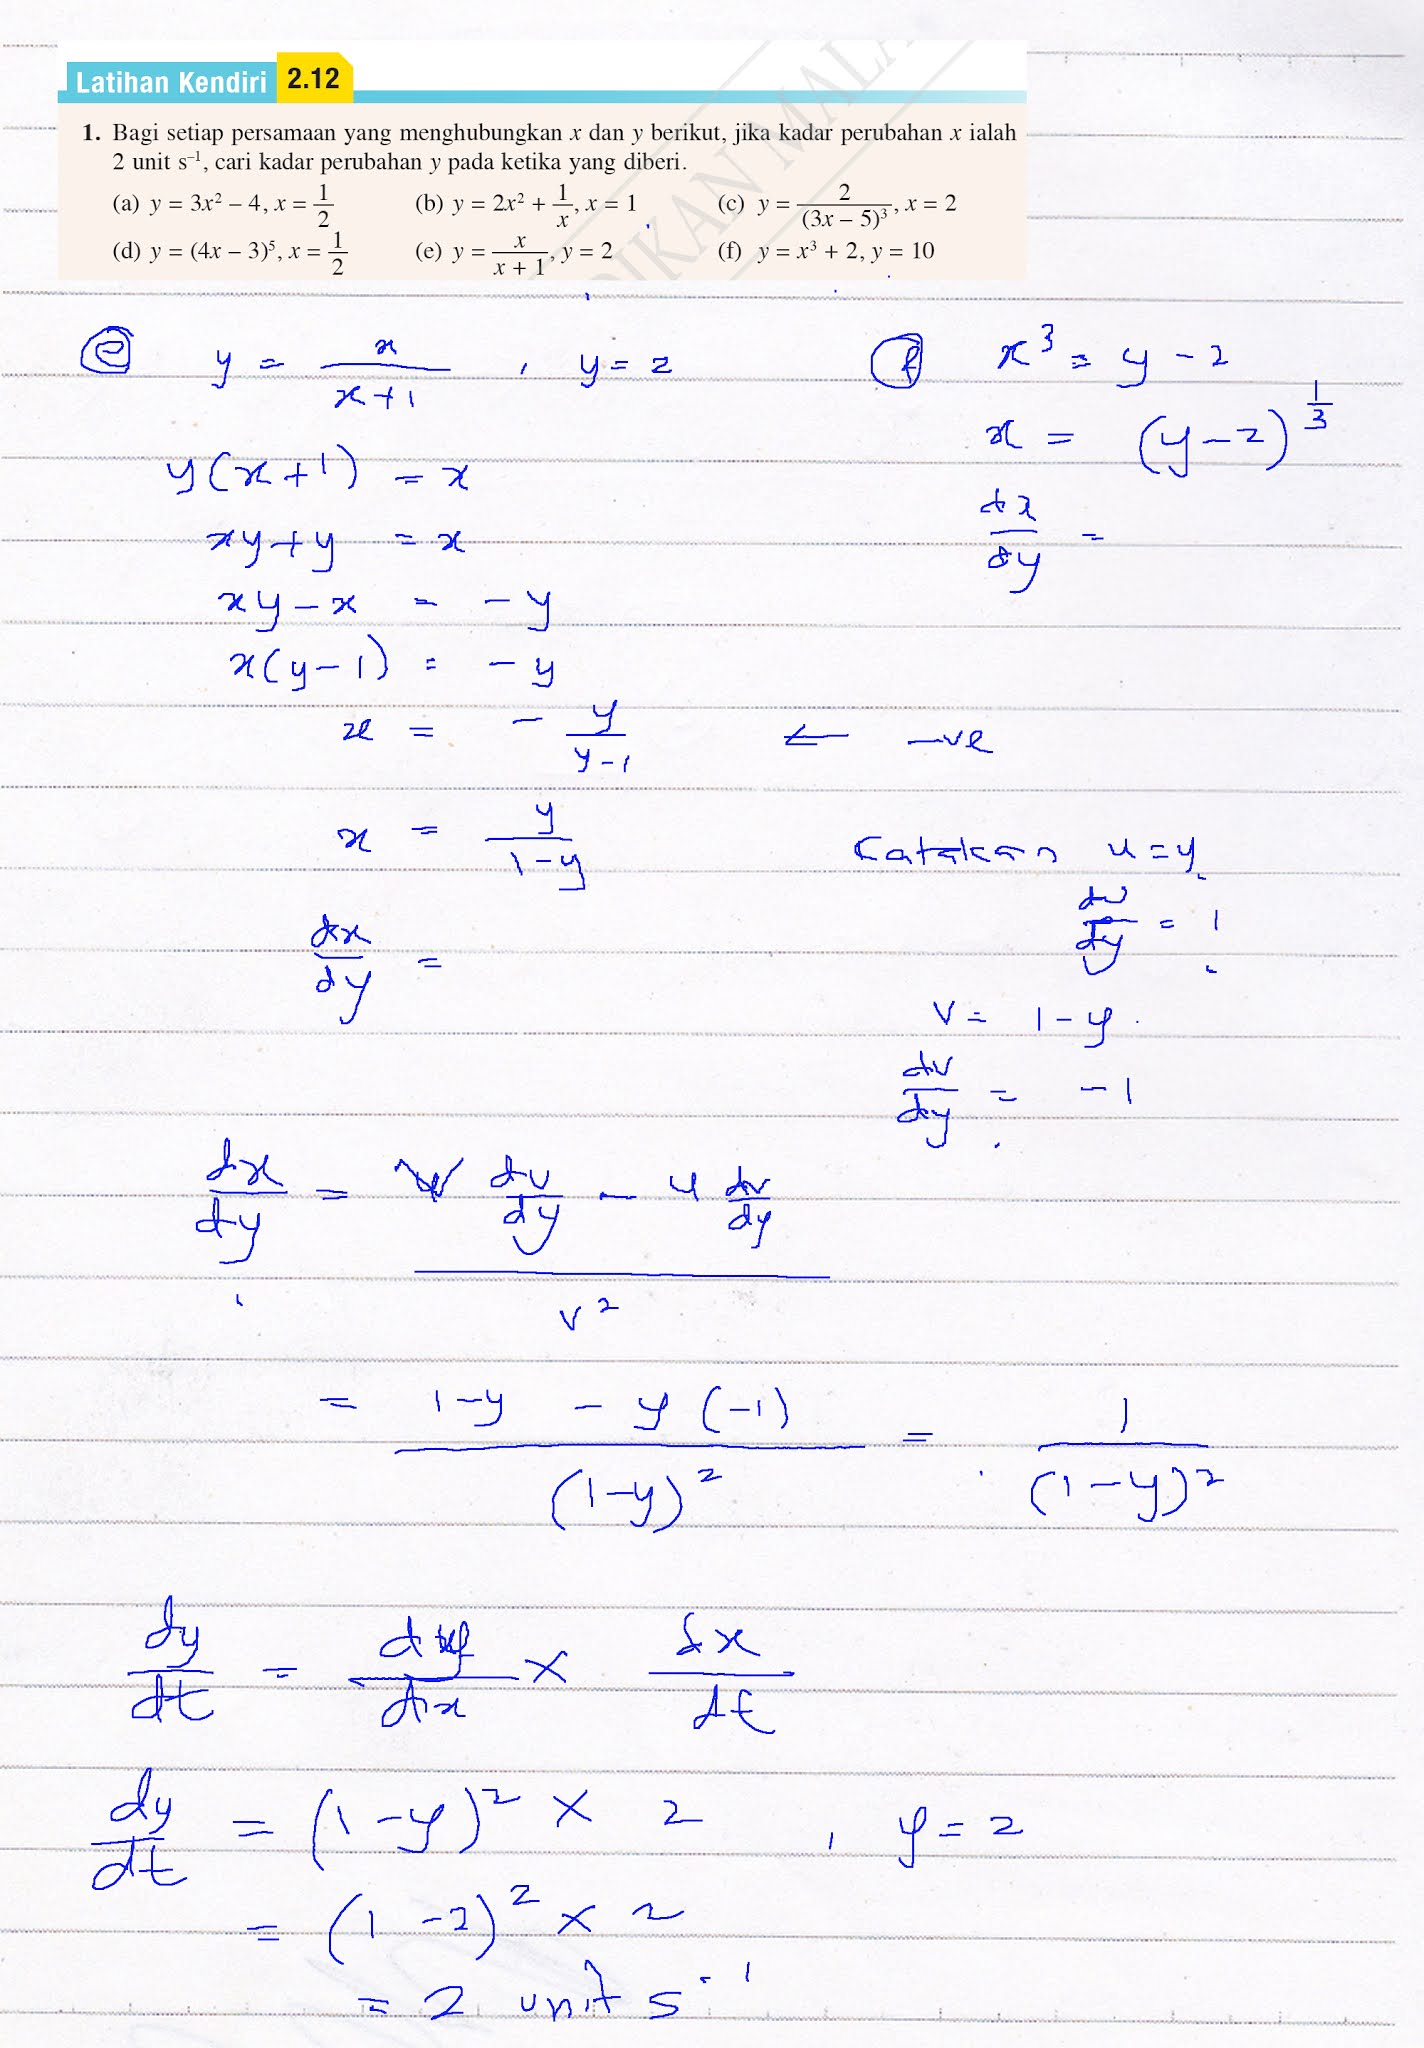 Latihan Kendiri 2.12
1. Bagi setiap persamaan yang menghubungkan x dan y berikut, jika kadar perubahan x ialah
2 unit s⁻¹, cari kadar perubahan y pada ketika yang diberi.
(a) y = 3x² – 4, x = 1/2 (b) y = 2x² + 1/x, x = 1 (c) y = 2/(3x – 5)³, x = 2
(d) y = (4x – 3)⁵, x = 1/2 (e) y = x/(x + 1), y = 2 (f) y = x³ + 2, y = 10
(e) y = x/(x+1) , y = 2
y(x+1) = x
xy+y = x
xy-x = -y
x(y-1) = -y
x = - y/(y-1) ← -ve
x = y/(1-y)
dx/dy =
(f) x³ = y - 2
x = (y-2)^(1/3)
dx/dy =
Katakan u = y
du/dy = 1
v = 1-y
dv/dy = -1
dx/dy = (v du/dy - u dv/dy)/v²
= (1-y - y(-1))/(1-y)² = 1/(1-y)²
dy/dt = dy/dx × dx/dt
dy/dt = (1-y)² × 2 , y = 2
= (1-2)² × 2
= 2 unit s⁻¹